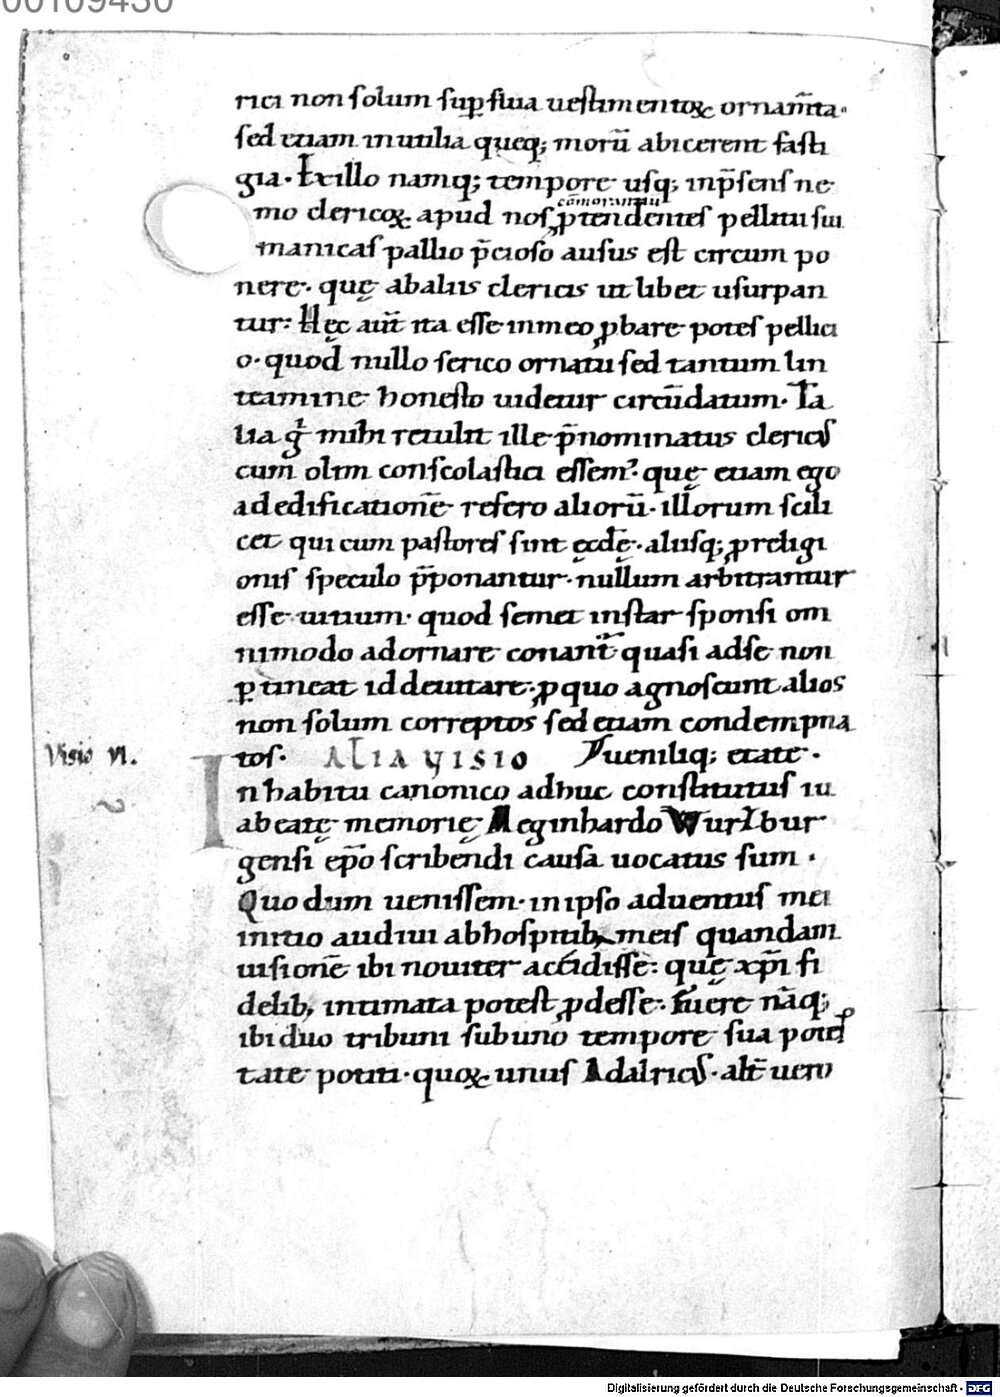 00109430
rici non solum sup̱flua uestimentoꝝ ornam̄ta.
sed etiam inutilia queq; morū abicerent fasti
gia. Ex illo namq; tempore usq; inp̄sens ne
cōmorantiū
mo clericoꝝ apud nos, ꝓtendentes pelliti sui
manicas pallio p̄cioso ausus est circum po
nere. quę abaliis clericis ut libet usurpan
tur: Hęc aut̄ ita esse inmeo ꝓbare potes pellici
o. quod nullo serico ornatu sed tantum lin
teamine honesto uidetur circūdatum. Ta
lia g̊ mihi retulit ille p̄nominatus clericus
cum olim conscolastici essem. quę etiam ego
ad edificationē refero aliorū. illorum scili
cet qui cum pastores sint ęccl̄ę. aliisq; ꝓ religi
onis speculo p̄ponantur. nullum arbitrantur
esse uitium. quod semet instar sponsi om
nimodo adornare conant̄ quasi adse non
ꝑtineat id deuitare. ꝓ quo agnoscunt alios
non solum correptos sed etiam condempna
tos. ALIA VISIO Iuueniliq; etate.
Visio VI.
In habitu canonico adhuc constitutus iu
ab eatę memorię Meginhardo Wurzbur
gensi ep̄o scribendi causa uocatus sum.
Quo dum uenissem. in ipso aduentus mei
initio audiui ab hospitib; meis quandam
uisionē ibi nouiter accidisse: quę xp̄i fi
delib; intimata potest ꝓdesse. Fuere nāq;
ibi duo tribuni sub uno tempore sua potes
tate potiti. quoꝝ unus Adalricus. alt̄ uero
Digitalisierung gefördert durch die Deutsche Forschungsgemeinschaft - DFG